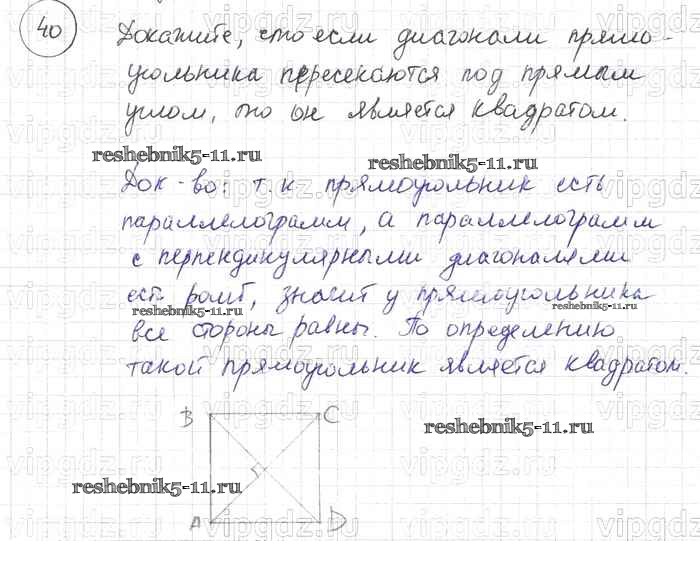 40
Докажите, что если диагонали прямо-
угольника пересекаются под прямым
углом, то он является квадратом.
reshebnik5-11.ru
reshebnik5-11.ru
Док-во: т.к прямоугольник есть
параллелограмм, а параллелограмм
с перпендикулярными диагоналями
есть ромб, значит у прямоугольника
reshebnik5-11.ru
reshebnik5-11.ru
все стороны равны. По определению
такой прямоугольник является квадратом.
B C
reshebnik5-11.ru
reshebnik5-11.ru
A D
vipgdz.ru